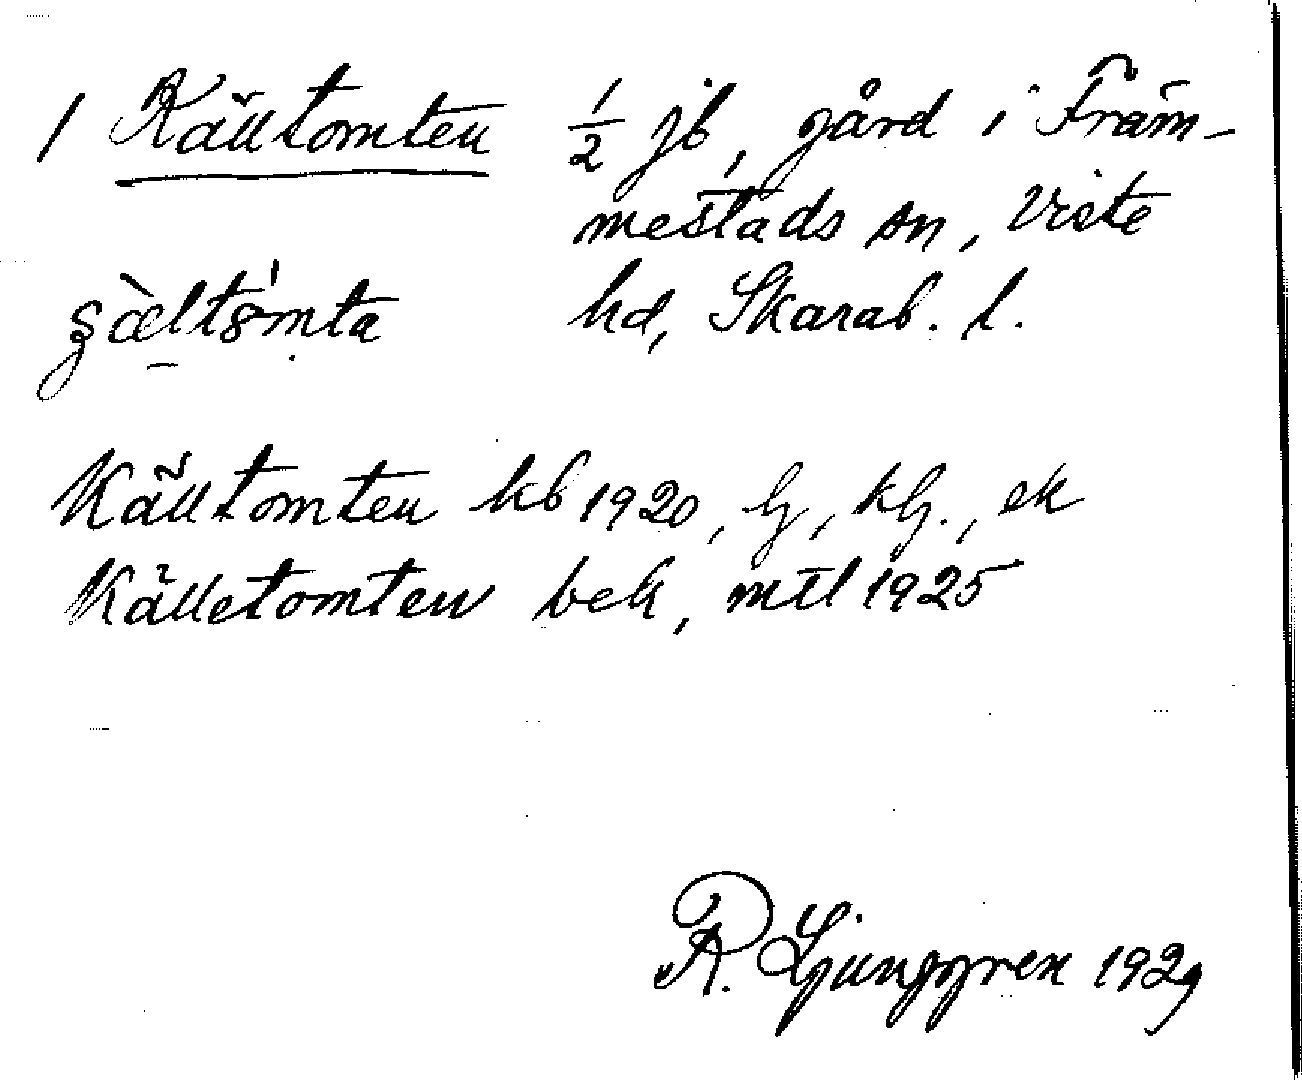 1 Källtomten ½ jb, gård i Främ-
mestads sn, Viste
hd, Skarab. l.
Källtomten kb 1920, lj, klj., ek
Källetomten bek, mtl 1925
R. Ljunggren 1929